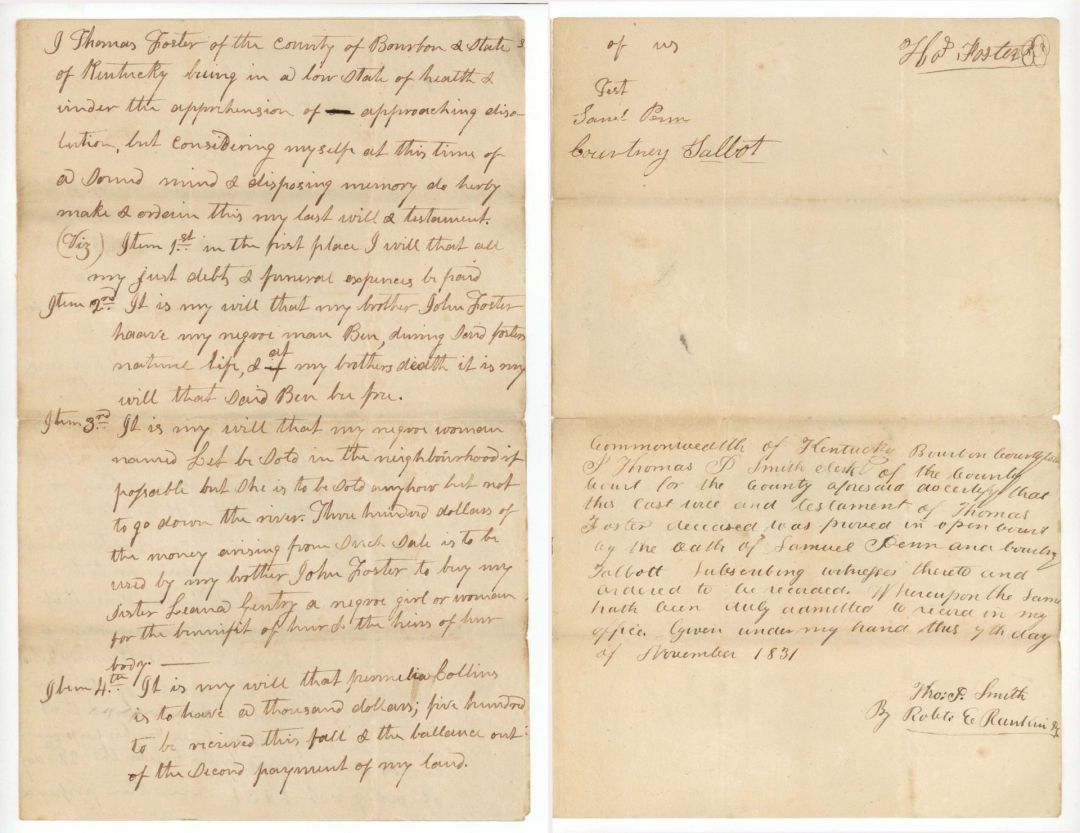 I Thomas Foster of the County of Bourbon & State
of Kentucky being in a low state of health &
under the apprehension of approaching diso-
lution, but considering myself at this time of
a sound mind & disposing memory do herby
make & ordain this my last will & testament.
(Viz) Item 1st in the first place I will that all
my just debts & funeral expences be paid
Item 2nd It is my will that my brother John Foster
haave my negroe man Ben, during said fosters
natural life, & at my brothers death it is my
will that said Ben be free.
Item 3rd It is my will that my negroe woman
named Let be sold in the neighbourhood if
possable but she is to be sold anyhow but not
to go down the river. Three hundred dollars of
the money arising from such sale is to be
used by my brother John Foster to buy my
sister Leana Gentry a negroe girl or woman
for the bennifit of hur & the heirs of hur
body.
Item 4th It is my will that permelia Collins
is to have a thousand dollars; five hundred
to be received this fall & the ballance out
of the second payment of my land.
of us Thos Foster
Test
Saml Penn
Courtney Talbot
Commonwealth of Kentucky Bourbon County
I Thomas P Smith clerk of the County
Court for the County aforesaid do certify that
this last will and testament of Thomas
Foster deceased was proved in open court
by the oath of Samuel Penn and Courtney
Talbott subscribing witnesses thereto and
ordered to be recorded. Whereupon the same
hath been duly admitted to record in my
office. Given under my hand this 7th day
of November 1831
Tho: P. Smith
By Robt. E Runkin